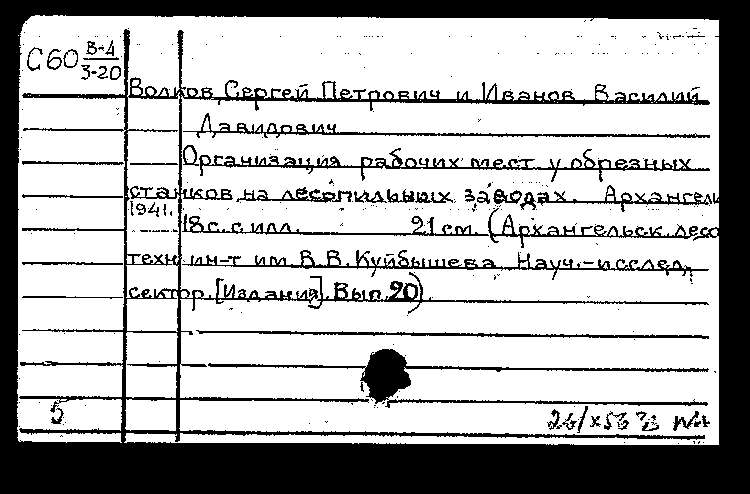 С60 В-4
3-20
Волков, Сергей Петрович и Иванов, Василий
Давидович
Организация рабочих мест у обрезных
станков на лесопильных заводах. Архангельск
1941.
18с. с илл. 21 см. (Архангельск. лесо
техн. ин-т им. В.В. Куйбышева Науч.-исслед.
сектор. [Издания]. Вып. 20).
5
26/X 56